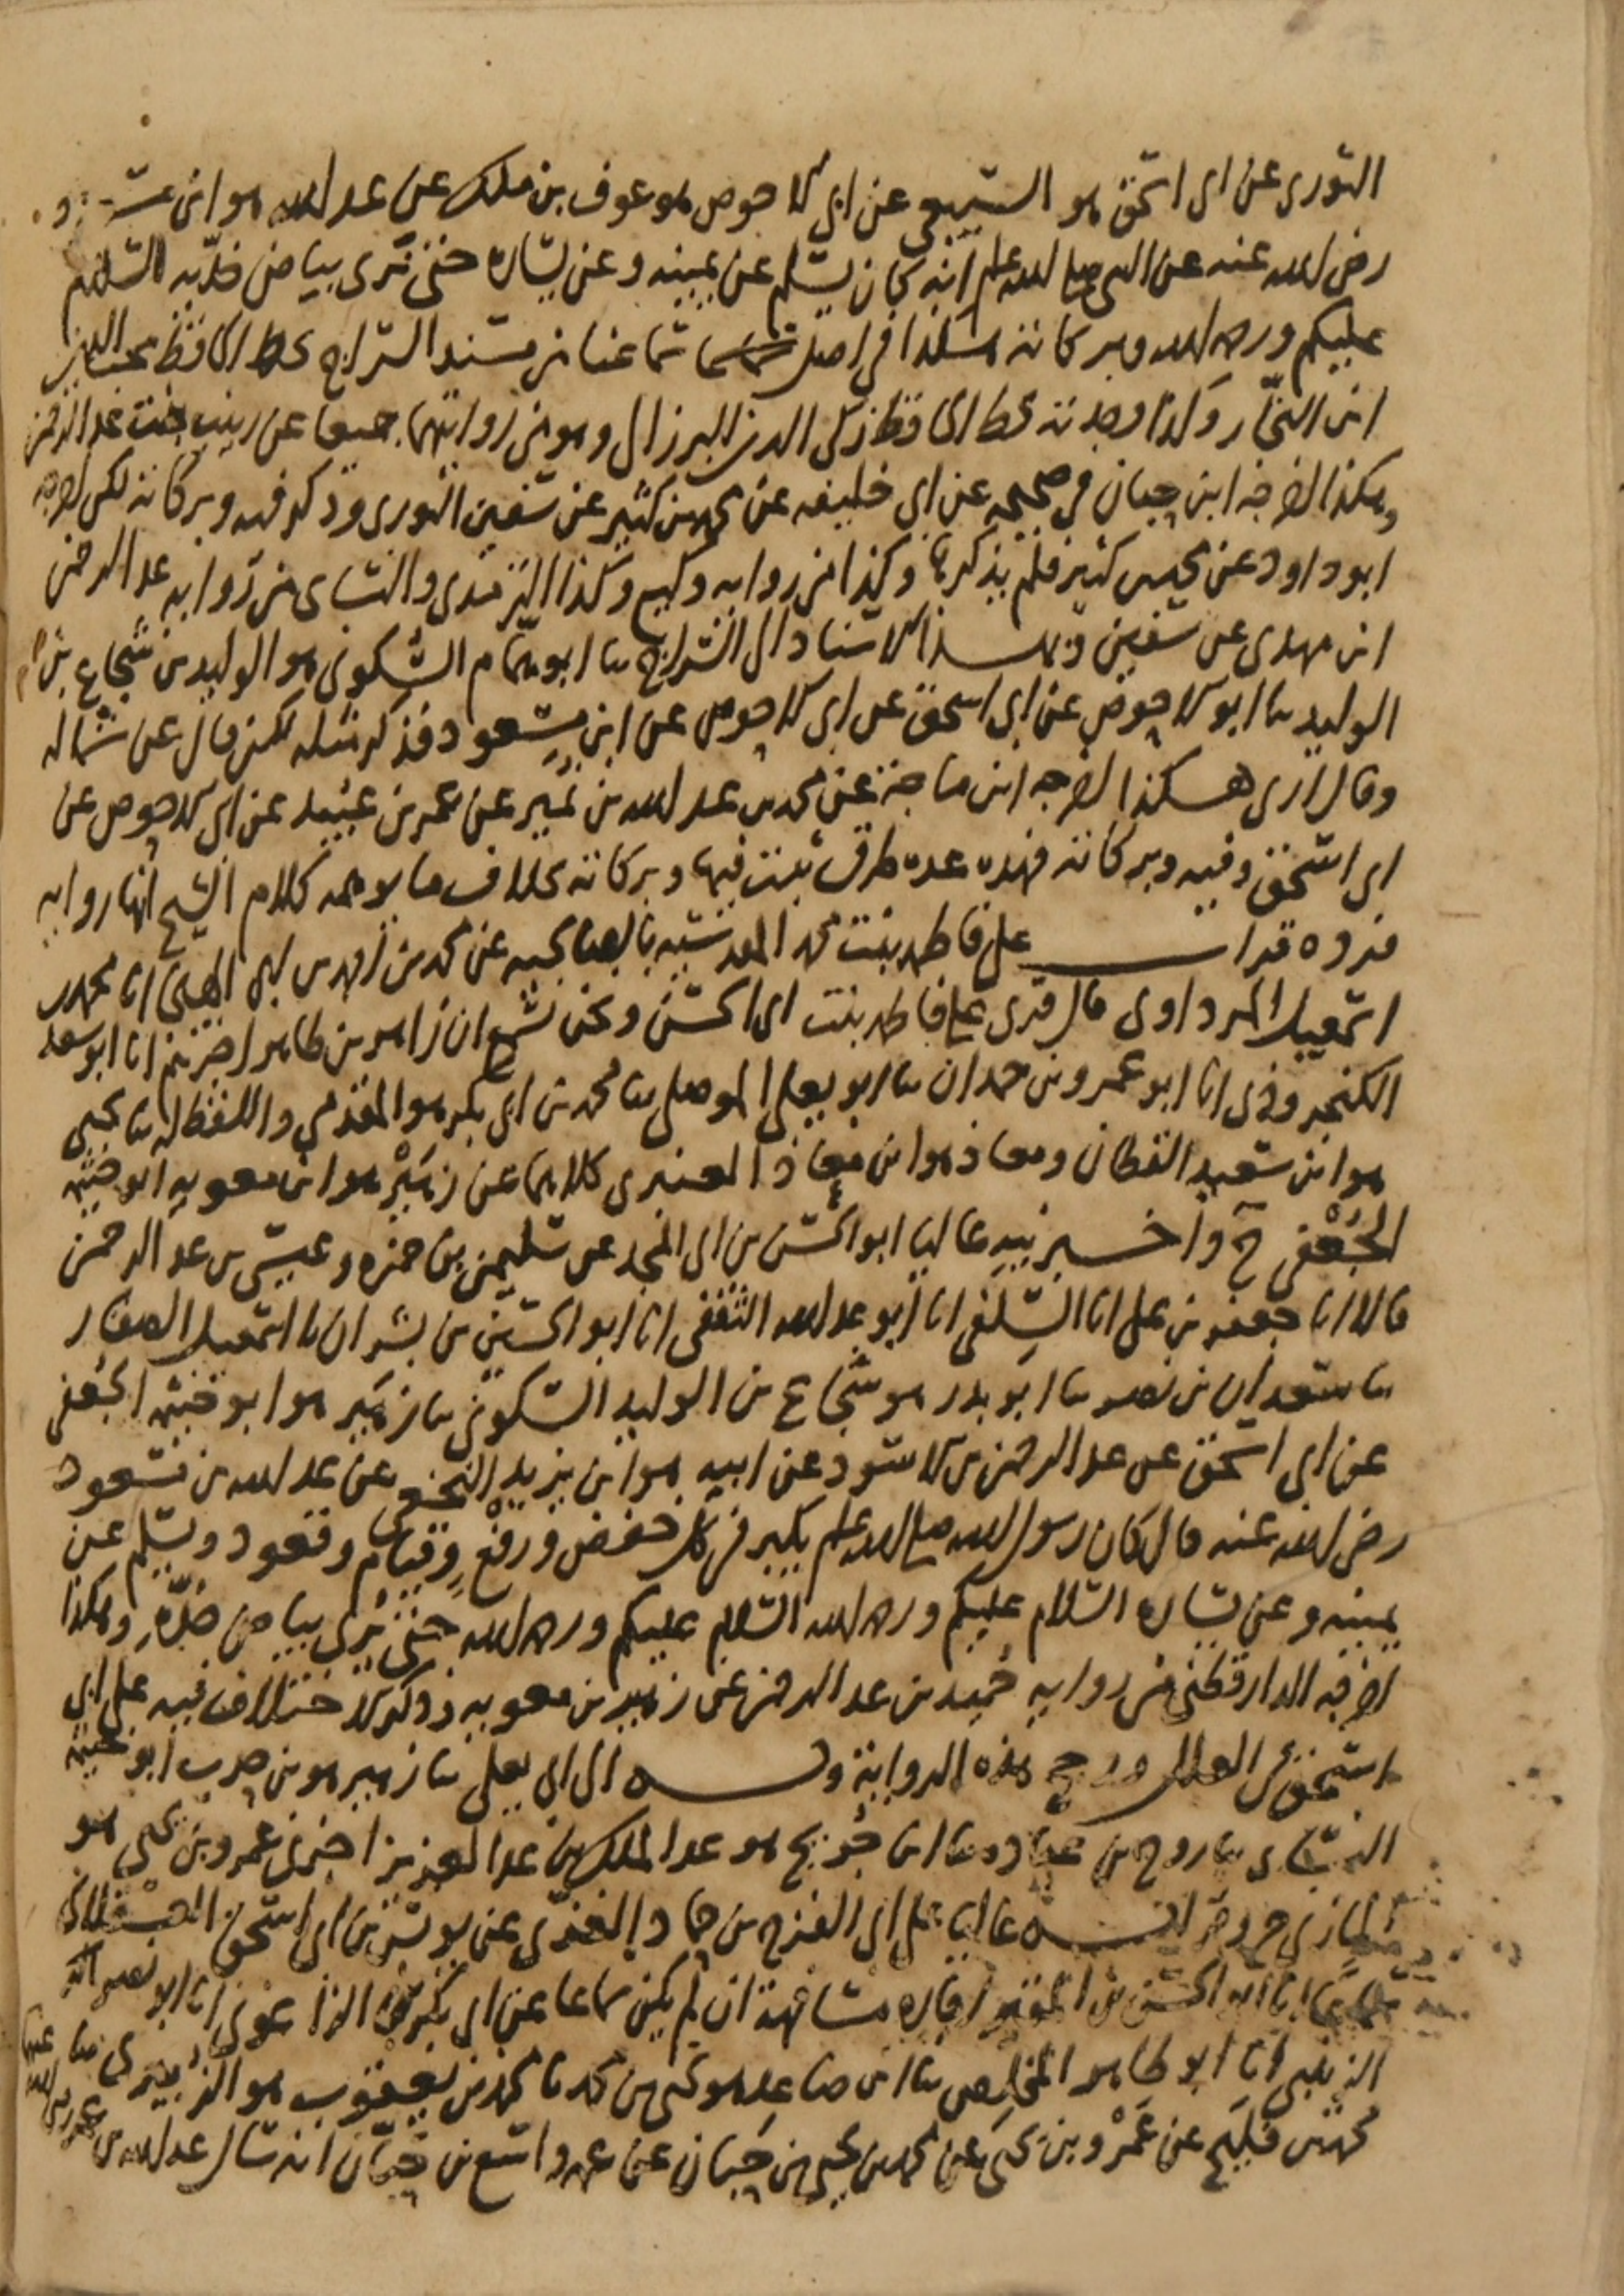 الثوري عن ابى اسحق هو السبيعي عن ابى الاحوص هو عوف بن ملك عن عبد الله هو ابن مسعود
رضى الله عنه عن النبي صلى الله عليه وسلم انه كان يسلم عن يمينه وعن يساره حتى نرى بياض خديه السلام
عليكم ورحمة الله وبركاته هكذا في اصل سماعنا من مسند السراج بخط الحافظ محب الدين
ابن النجار وكذا وجدته بخط الحافظ زكى الدين البرزالى وهو من روايتهما جميعا عن زينب بنت عبد الرحمن
وهكذا اخرجه ابن حبان في صحيحه عن ابى خليفه عن محمد بن كثير عن سفين الثورى وذكر فيه وبركاته لكن اخرجه
ابو داود عن محمد بن كثير فلم يذكرها وكذا من روايه وكيع وكذا الترمذى والنساى من روايه عبد الرحمن
ابن مهدى عن سفين وبهذا الاسناد الى السراج ثنا ابو همام السكونى هو الوليد بن شجاع بن
الوليد ثنا ابو الاحوص عن ابى اسحق عن ابى الاحوص عن ابن مسعود فذكر مثله لكن قال عن شماله
وقال ارى هكذا اخرجه ابن ماجة عن محمد بن عبد الله بن نمير عن عمر بن عبيد عن ابى الاحوص عن
ابى اسحق وفيه وبركاته فهذه عده طرق ثبتت فيها وبركاته بخلاف ما يوهمه كلام الشيخ انها روايه
فرده قرات على فاطمه بنت محمد المقدسيه بالصالحيه عن محمد بن ابى الهيجا انا محمد بن
اسمعيل المرداوى قال قرى على فاطمه بنت ابى الحسن ونحن نسمع ان زاهر بن طاهر اخبرهم انا ابو سعد
الكنجروذى انا ابو عمرو بن حمدان ثنا ابو يعلى الموصلى ثنا محمد بن ابى بكر هو المقدمى واللفظ له ثنا يحيى
هو ابن سعيد القطان ومعاذ هو ابن معاذ العنبرى كلاهما عن زهير هو ابن معويه ابو خيثمه
الجعفى ح واخبرنيه عاليا ابو الحسن بن ابى المجد عن سليمن بن حمزه وعيسى بن عبد الرحمن
قالا انا جعفر بن على انا السلفى انا ابو عبد الله الثقفى انا ابو الحسين بن بشران نا اسمعيل الصفار
ثنا سعدان بن نصر ثنا ابو بدر هو شجاع بن الوليد السكونى ثنا زهير هو ابو خيثمه الجعفى
عن ابى اسحق عن عبد الرحمن بن الاسود عن ابيه هو ابن يزيد النخعى عن عبد الله بن مسعود
رضى الله عنه قال كان رسول الله صلى الله عليه وسلم يكبر في كل خفض ورفع وقيام وقعود ويسلم عن
يمينه وعن يساره السلام عليكم ورحمة الله السلام عليكم ورحمة الله حتى يرى بياض خده وهكذا
اخرجه الدارقطنى من روايه حميد بن عبد الرحمن عن زهير بن معويه وذكر الاختلاف فيه على ابى
اسحق في العلل ورجح هذه الرواية وبه الى ابى يعلى ثنا زهير هو بن حرب ابو خيثمه
النساى ثنا روح بن عباده ثنا ابن جريج هو عبد الملك بن عبد العزيز اخبرنى عمرو بن يحيى هو
المازنى ح وقراته عاليا على ابى الفرج بن حماد الغزى عن يونس بن ابى اسحق العسقلانى
سماعا انا ابو الحسن بن المقير اجازه مشافهة ان لم يكن سماعا عن ابى بكر بن الزاغونى انا ابو نصر
الزينبى انا ابو طاهر المخلص ثنا ابن صاعد هو يحيى بن محمد نا محمد بن يعقوب هو الزبيرى ثنا
محمد بن فليح عن عمرو بن يحيى عن محمد بن يحيى بن حبان عن عمه واسع بن حبان انه سال عبد الله بن عمر رضى الله عنهما